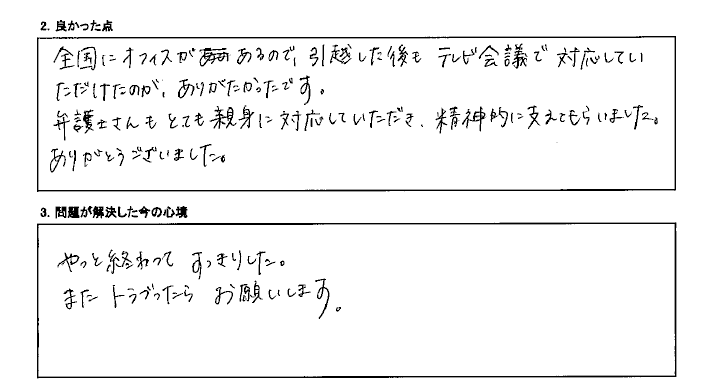 2. 良かった点
全国にオフィスが あるので、引越した後も テレビ会議で 対応してい
ただけたのが、ありがたかったです。
弁護士さんも とても 親身に対応していただき、精神的に支えてもらいました。
ありがとうございました。
3. 問題が解決した今の心境
やっと終わって すっきりした。
また トラブったら お願いします。